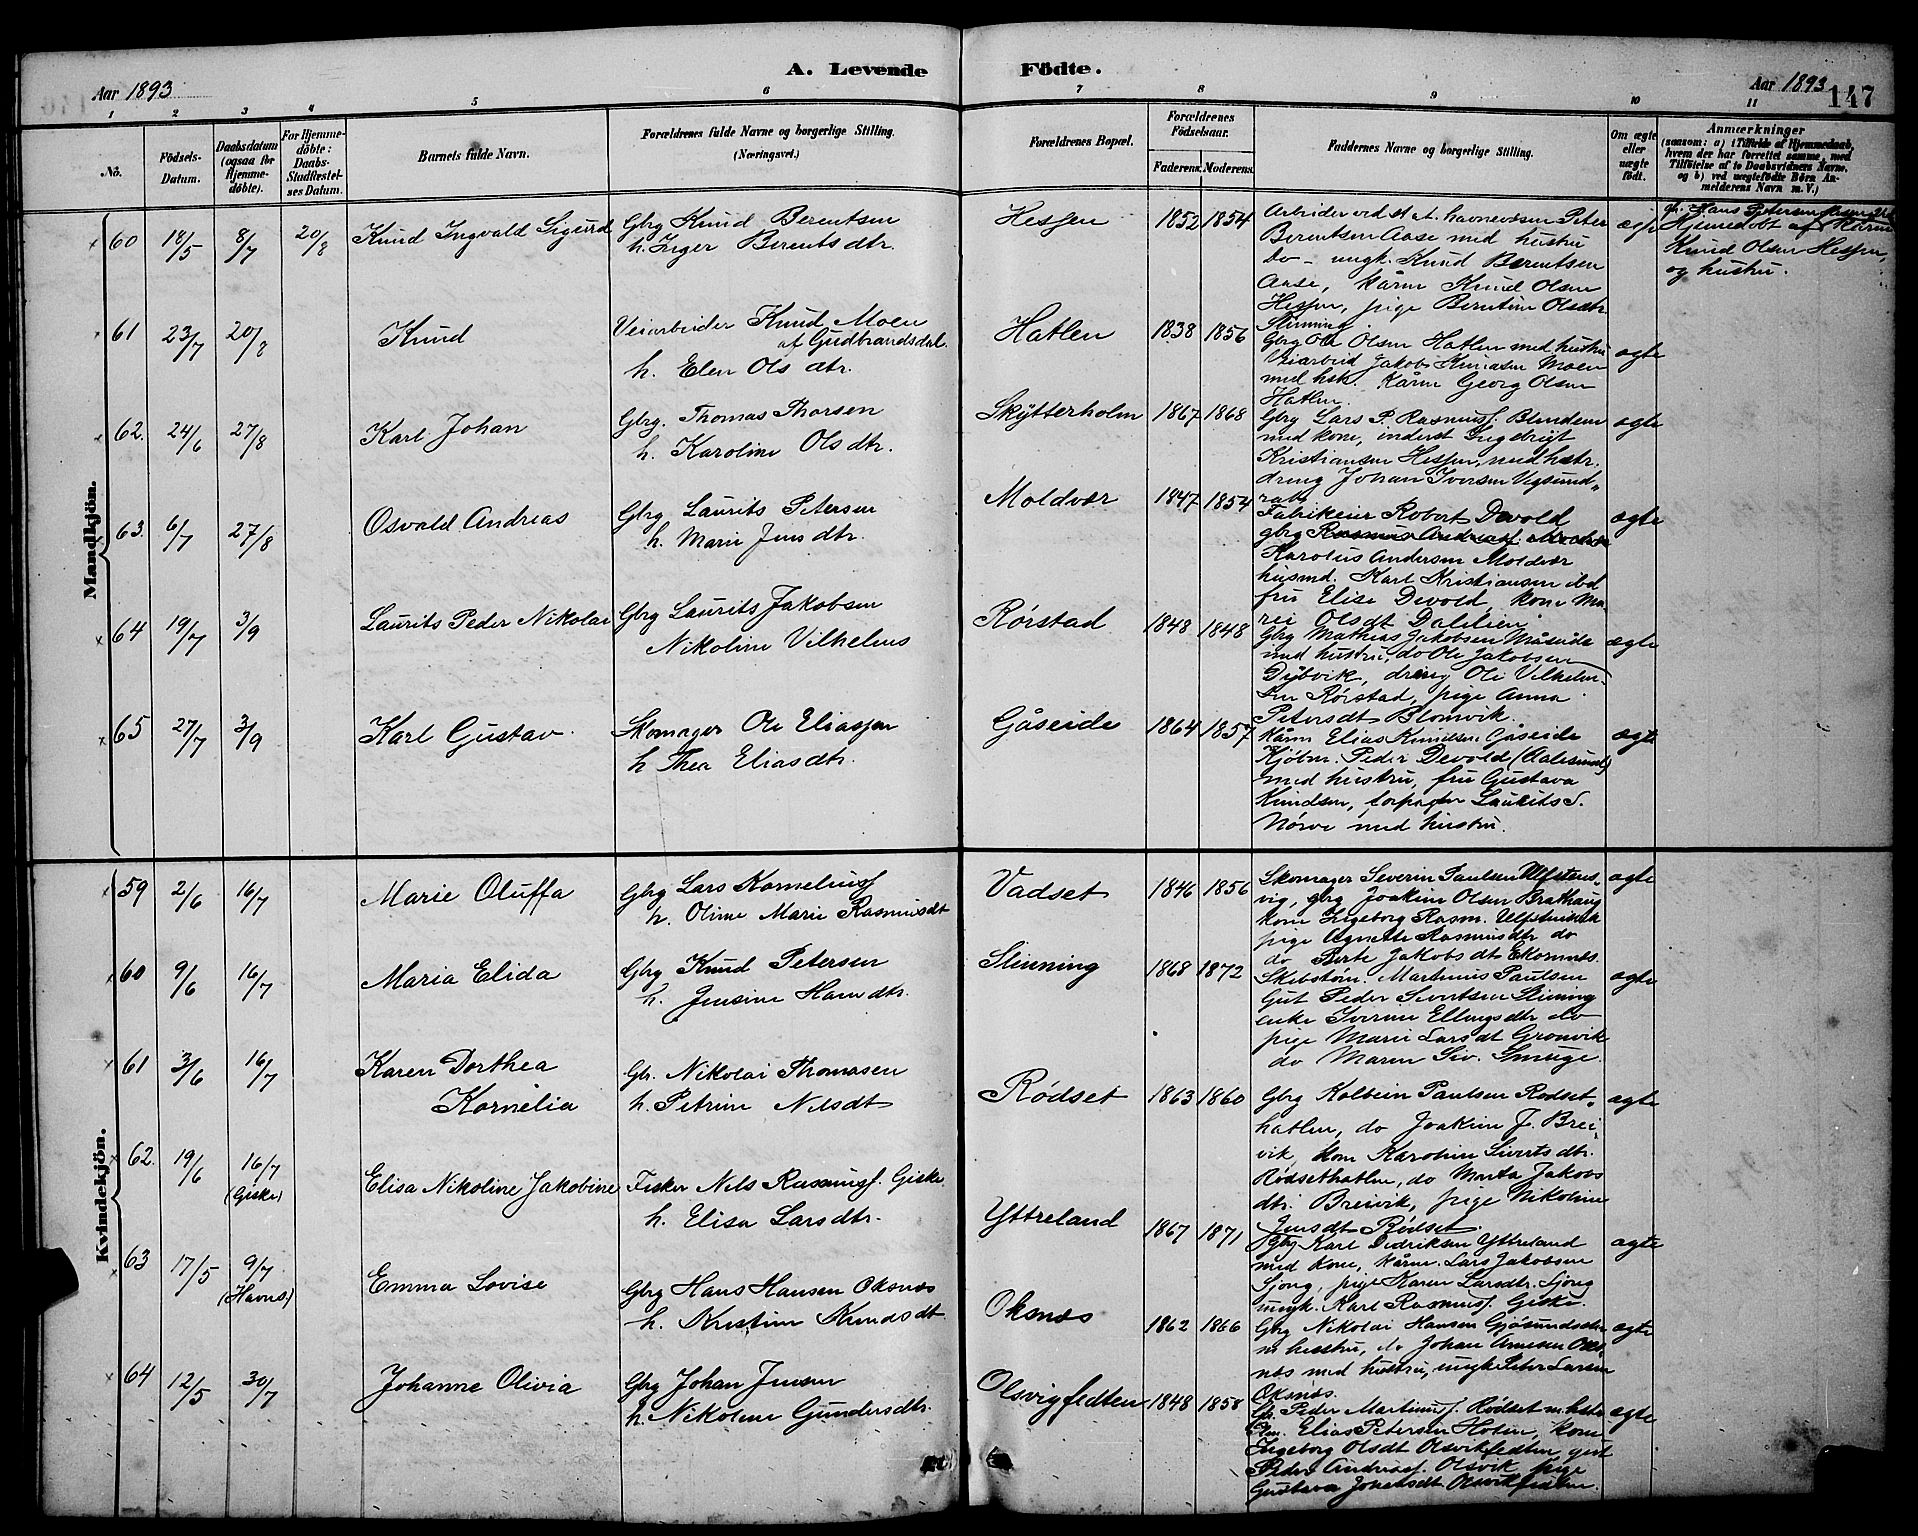 Aar 1893
A. Levende
Födte.
Aar 1893
147
1 2 3 4 5 6 7 8 9 10 11
No.
Födsels-Datum.
Daabsdatum (ogsaa for Hjemme-döbte).
For Hjemme-döbte: Daabs-Stadfæstel-ses Datum.
Barnets fulde Navn.
Forældrenes fulde Navne og borgerlige Stilling. (Næringsvei.)
Forældrenes Bopæl.
Forældrenes Födselsaar.
Faderens. Moderens.
Faddernes Navne og borgerlige Stilling.
Om ægte eller uægte födt.
Anmærkninger
(saasom: a) i Tilfælde af Hjemmedaab, hvem der har forrettet samme, med Tilföielse af to Daabsvidners Navne, og b) ved uægtefödte Börn An-melderens Navn m. V.)
Mandkjön.
60 18/5 8/7 20/8 Knud Ingvald Sigurd
Gbrg Knud Berentsen
h. Inger Berents dtr.
Hessen 1852 1854
Arbeider ved st. a. t. havnevæsen Peter
Berentsen Aase med hustru
do - ungk. Knud Berentsen
Aase, kårm Knud Olsen
Hessen, pige Berntine Olsdtr
Slinning.
ægte
Hans Petersen
Hjemedöbt af Kårm
Knud Olsen Hessen,
og hustru.
61 23/7 20/8 Knud
Veiarbeider Knud Moen
af Gudbrandsdal.
h. Elen Ols dtr.
Hatlen 1838 1856
Gbrg Ole Olsen Hatlen med hustru
Veiarbeid Jakob Knudsen Moen
med hstr. Kårm Georg Olsen
Hatlen.
ægte
62. 24/6 27/8 Karl Johan
Gbrg. Thomas Thorsen
h. Karoline Ols dtr.
Skytterholm 1867 1868
Gbrg Lars P. Rasmuss. Blindem
med kone, inderst Ingebrigt
Kristiansen Hessen, med hstr.
dreng Johan Iversen Vegsund-
ægte
63. 6/7 27/8 Osvald Andreas
Gbrg Laurits Petersen
h. Marie Jens dtr.
Moldvær 1847 1854
Fabrikeier Robert Devold
gbrg Rasmus Andreas
Karolus Andersen Moldvær
husmd. Karl Kristiansen ibd
fru Elise Devold, kone Ma-
rei Olsdt Dahlen
ægte
64 19/7 3/9 Laurits Peder Nikolai
Gbrg Laurits Jakobsen
Nikoline Vilhelms
Rörstad 1848 1848
Gbrg Mathias Jakobsen Måseide
med hustru, do Ole Jakobsen
Dybvik, dreng Ole Vilhelm-
sen Rörstad, pige Anna
Petersdt Blomvik.
ægte
65 27/7 3/9 Karl Gustav
Skomager Ole Eliassen
h Thea Eliasdtr.
Gåseide 1864 1857
Kårm Elias Knudsen Gåseide
Kjöbm. Peder Devold (Aalesund)
med hustru, fru Gustava
Knudsen, forpagter Laurits S.
Nörve med hustru.
ægte
Kvindekjön.
59 2/6 16/7 Marie Oluffa
Gbrg Lars Kornelius.
h. Oline Marie Rasmusdt
Vadset 1846 1856
Skomager Severin Paulsen Ulfstens-
vig, gbrg Joakim Olsen Brathaug
kone Ingeborg Rasm. Ulfstensvik
pige Agnette Rasmusdtr do
do Berte Jakobs dt Ekornæs.
ægte
60 9/6 16/7 Maria Elida
Gbrg Knud Petersen
h. Jensine Hans dtr.
Slinning 1868 1872
Skibstöm. Martinus Paulsen
Gut Peder Sivertsen Slinning
enke Iverine Ellingsdtr do
pige Marie Larsdt Grönvik
do Maren Siv. Smuge.
ægte
61 3/6 16/7 Karen Dorthea
Kornelia
Gbr. Nikolai Thomasen
h. Petrine Nilsdt
Rödset 1863 1860
Gbrg Kolbein Paulsen Rödset-
hatlen, do Joakim J. Brei-
vik, kone Karoline Siverts dtr.
Rödsethatlen, do Marta Jakobs
dtr. Breivik, pige Nikoline
Jensdt Rödset.
ægte
62. 19/6 16/7 (Giske) Elisa Nikoline Jakobine
Fisker Nils Rasmuss. Giske
h. Elisa Larsdtr.
Yttreland 1867 1871
Gbrg Karl Didriksen Yttreland
med kone, Kårm. Lars Jakobsen
Sjong, pige Karen Larsdtr. Sjong
ungk. Karl Rasmuss. Giske.
ægte
63 17/5 9/7 (Havns) Emma Lovise
Gbrg Hans Hansen Oksnæs
h. Kristine Knuds dt
Oksnæs 1862 1866
Gbrg Nikolai Hansen Gjösundsæter
m hustru, do Johan Arnesen Oks-
næs med hustru, ungk Peter Larsen
Oksnæs.
ægte
64 12/5 30/7 Johanne Olivia
Gbrg Johan Jensen
h. Nikoline Gundersdtr.
Olsvigfedten 1848 1858
Gb. Peder Martinuss. Rödset m. hstr
Elias Petersen Holen, kone
Ingeborg Olsdt Olsvikfedten, gut
Peder Andreas. Olsvik, pige
Gustava Johansdt Olsvikfedten.
ægte